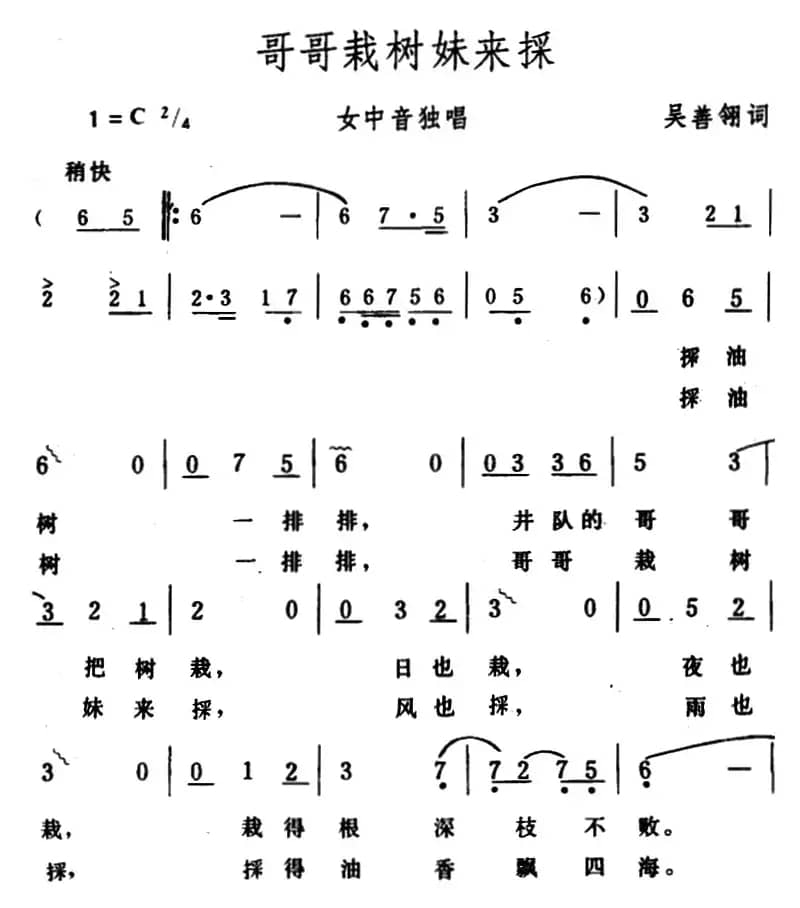 哥哥栽树妹来採
1 = C 2/4 女中音独唱 吴善翎词
稍快
( 6 5 ‖: 6 — | 6 7 · 5 | 3 — | 3 2 1 |
2 2 1 | 2 · 3 1 7 | 6 6 7 5 6 | 0 5 6 ) | 0 6 5 |
採油
採油
6 0 | 0 7 5 | 6 0 | 0 3 3 6 | 5 3 |
树 一排排, 井队的哥哥
树 一排排, 哥哥栽树
3 2 1 | 2 0 | 0 3 2 | 3 0 | 0 5 2 |
把树栽, 日也栽, 夜也
妹来採, 风也採, 雨也
3 0 | 0 1 2 | 3 7 | 7 2 7 5 | 6 — |
栽, 栽得根深枝不败。
採, 採得油香飘四海。